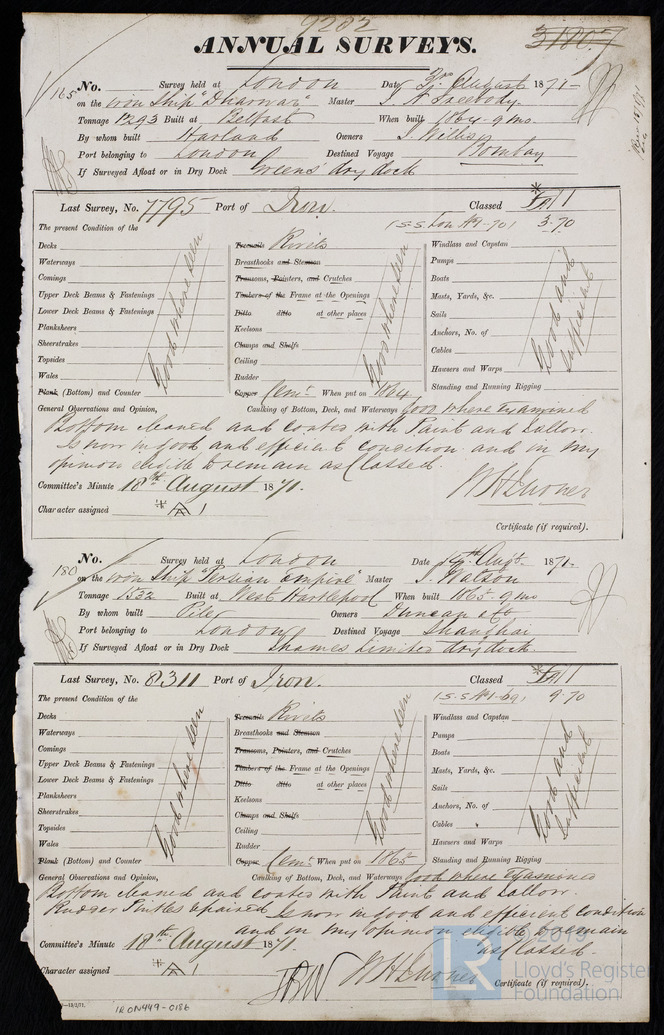 9202
ANNUAL SURVEYS.
165 No. Survey held at London Date August 1871-
on the iron Ship "Dharwar" Master Freebody.
Tonnage 1293 Built at Belfast When built 1864-9 mo.
By whom built Harland Owners J. Willis
Port belonging to London Destined Voyage Bombay
If Surveyed Afloat or in Dry Dock Greens dry dock
Last Survey, No. 7795 Port of Iron. Classed A 1
3.70
The present Condition of the
Decks
Waterways
Comings
Upper Deck Beams & Fastenings
Lower Deck Beams & Fastenings
Planksheers
Sheerstrakes
Topsides
Wales
Plank (Bottom) and Counter
Good where seen
Treenails Rivets
Breasthooks and Stemson
Transoms, Pointers, and Crutches
Timbers of the Frame at the Openings
Ditto ditto at other places
Keelsons
Clamps and Shelfs
Ceiling
Rudder
Copper Cemt. When put on 1864
Good where seen
Windlass and Capstan
Pumps
Boats
Masts, Yards, &c.
Sails
Anchors, No. of
Cables
Hawsers and Warps
Standing and Running Rigging
Good and Sufficient
General Observations and Opinion, Caulking of Bottom, Deck, and Waterways good where examined
Bottom cleaned and coated with Paint and Tallow.
Is now in good and efficient condition and in my
opinion eligible to remain as Classed.
Committee's Minute 18th August 1871.
Character assigned A 1
Certificate (if required).
180 No. Survey held at London Date Augt. 1871-
on the iron Ship "Persian Empire" Master J. Watson
Tonnage 1532 Built at West Hartlepool When built 1865-9 mo
By whom built Pile Owners Duncan & Co
Port belonging to London Destined Voyage Shanghai
If Surveyed Afloat or in Dry Dock Thames Limited dry dock.
Last Survey, No. 8311 Port of Iron. Classed A 1
9.70
The present Condition of the
Decks
Waterways
Comings
Upper Deck Beams & Fastenings
Lower Deck Beams & Fastenings
Planksheers
Sheerstrakes
Topsides
Wales
Plank (Bottom) and Counter
Good where seen
Treenails Rivets
Breasthooks and Stemson
Transoms, Pointers, and Crutches
Timbers of the Frame at the Openings
Ditto ditto at other places
Keelsons
Clamps and Shelfs
Ceiling
Rudder
Copper Cemt. When put on 1865
Good where seen
Windlass and Capstan
Pumps
Boats
Masts, Yards, &c.
Sails
Anchors, No. of
Cables
Hawsers and Warps
Standing and Running Rigging
Good and Sufficient
General Observations and Opinion, Caulking of Bottom, Deck, and Waterways Good where examined
Bottom cleaned and coated with Paint and Tallow.
Rudder Pintles repaired. Is now in good and efficient condition
and in my opinion eligible to remain
as Classed.
Committee's Minute 18th August 1871.
Character assigned A 1
Certificate (if required).
IRON449-0186
LR
© 2019
Lloyd's Register
Foundation